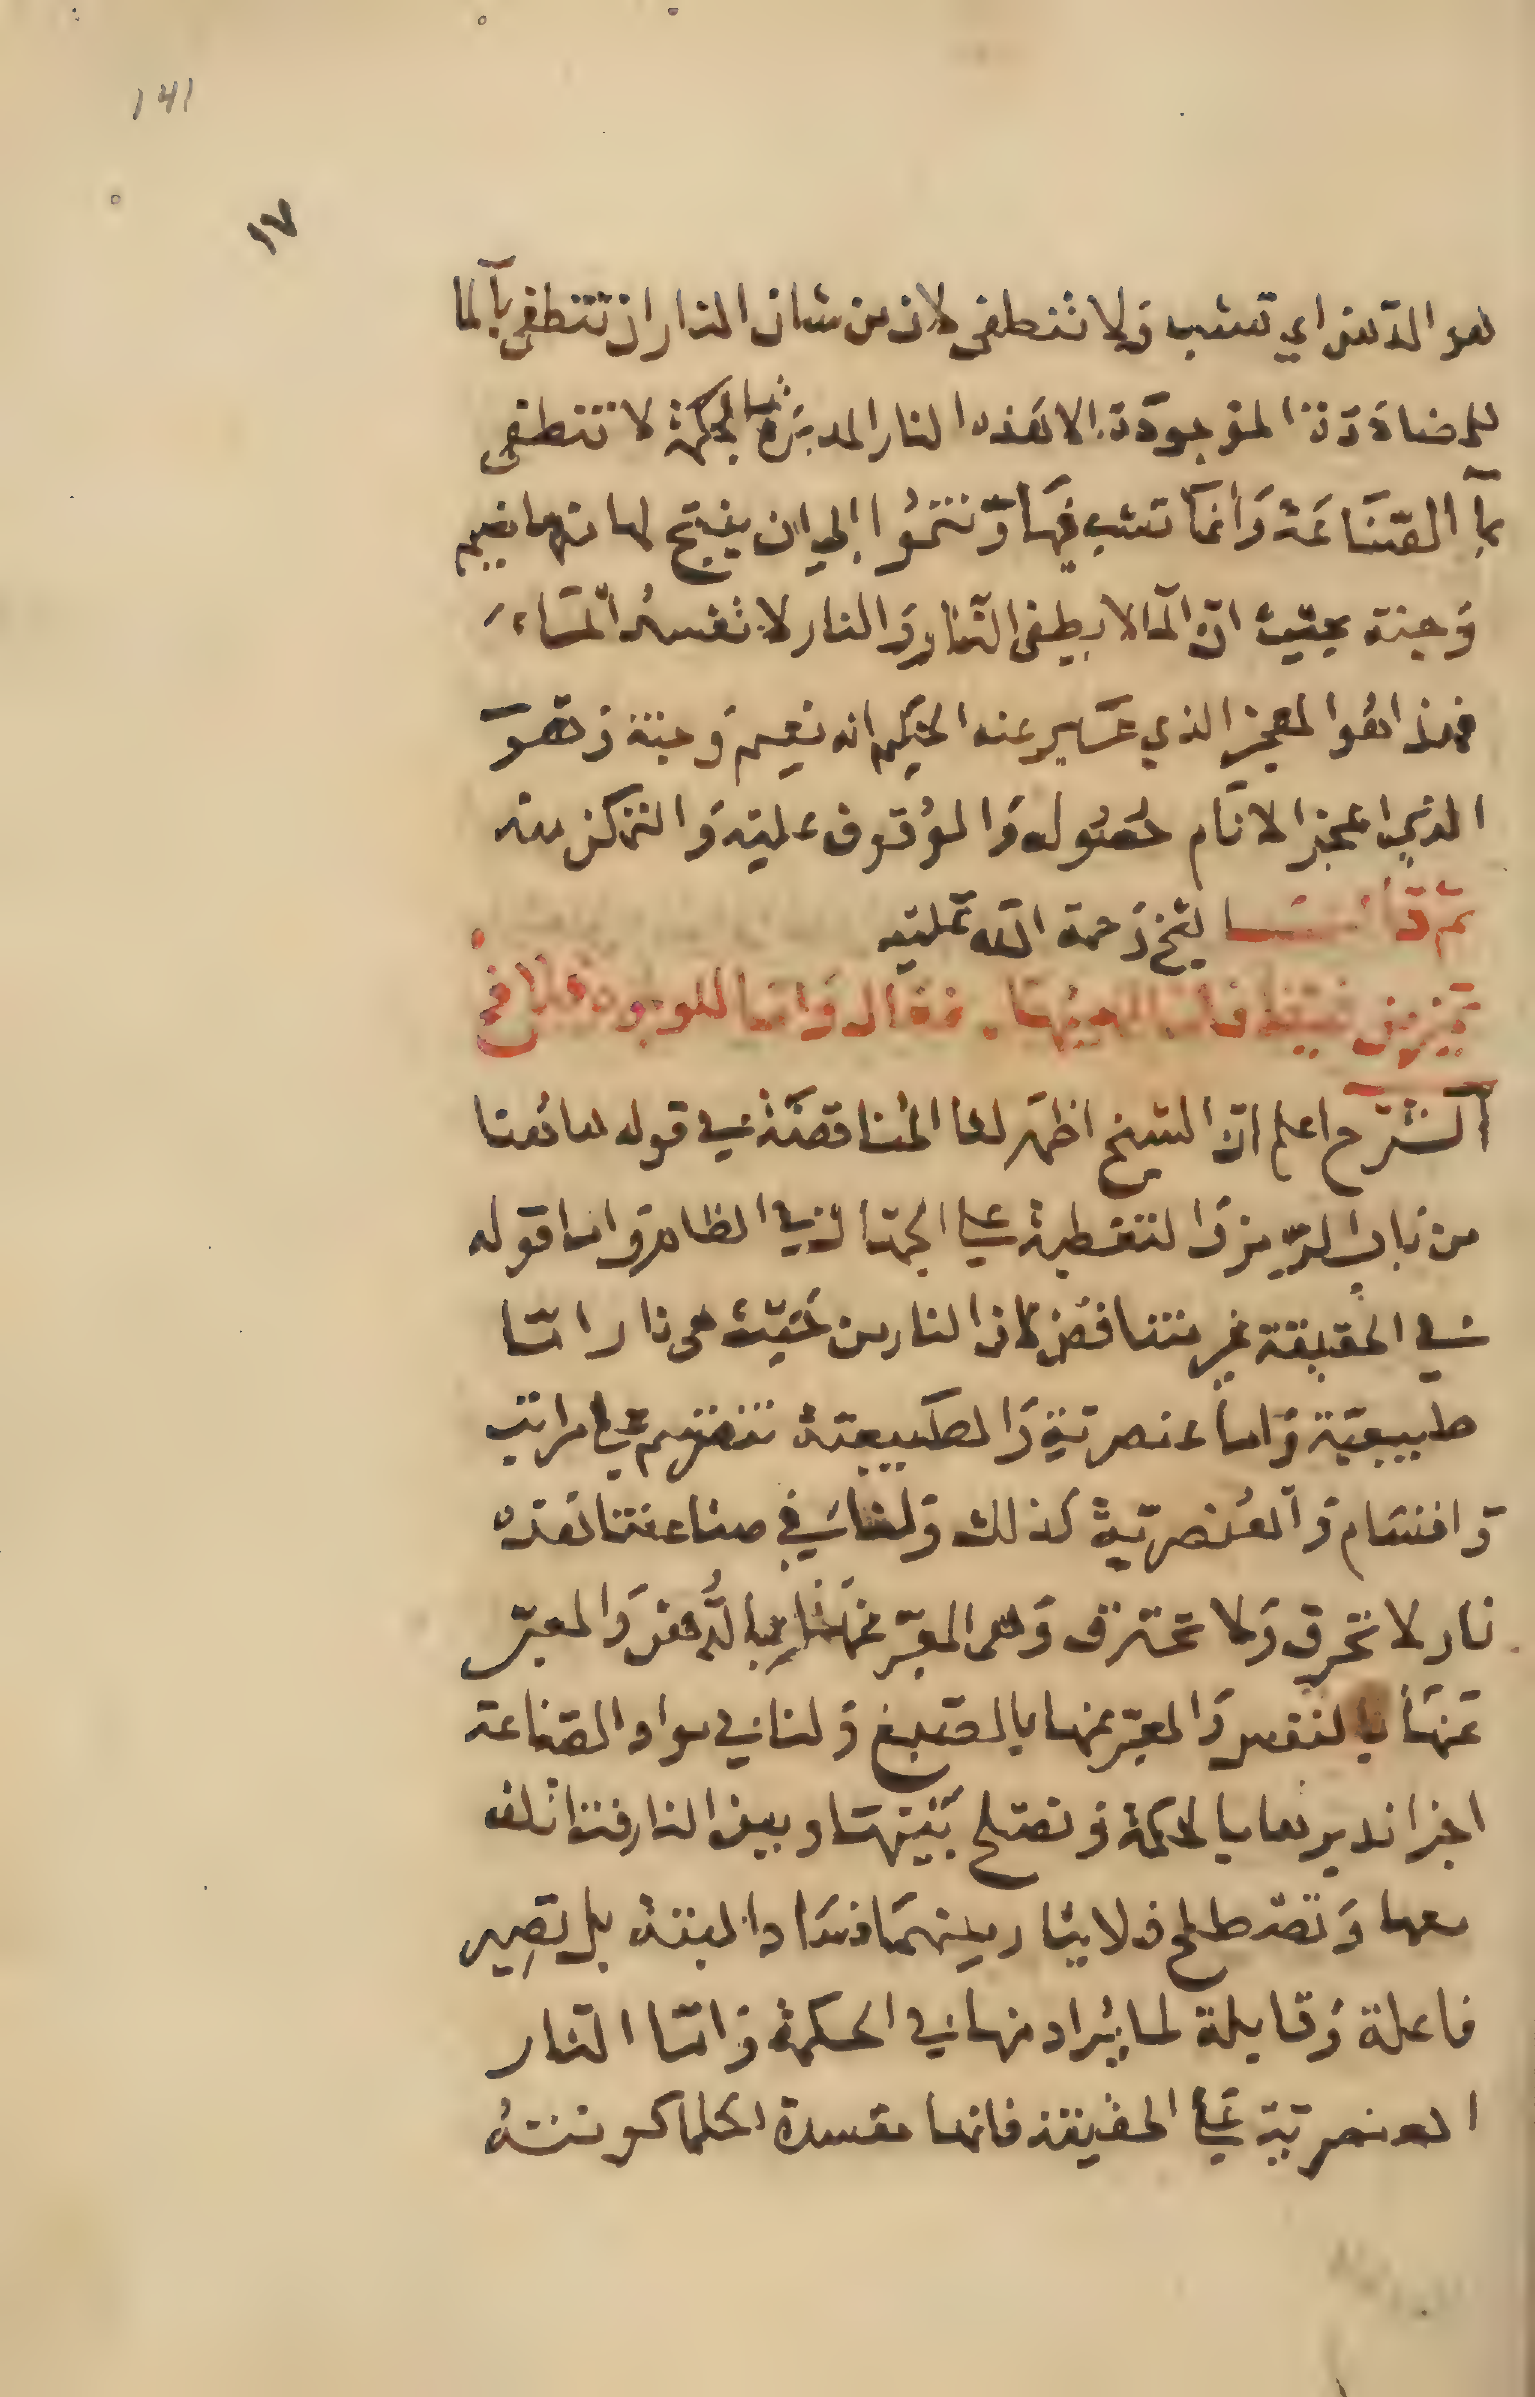 ١٤١
١٧
هو الدهن اي تشب ولا تنطفى لان من شان النار ان تنطفى بالما
للمضاددة الموجودة الا هذه النار المدبرة بالحكمة لا تنطفى
بما الصناعة وانما تشب فيها وتنموا الي ان ينتج لها نعيم
وجنة بحيث ان الما لا يطفى النار والنار لا تفسد الماء
فهذا هوا المعجز الذي عبر عنه الحكيم انه نعيم وجنة وهو
الذي اعجز الانام حصوله والوقوف عليه والتمكن منه
ثم قال الشيخ رحمة الله عليه
فقال واما للوجود
الشرح اعلم ان الشيخ اظهر لها المناقضة في قوله هاهنا
من باب الرمز والتغطية على الجهال في الظاهر واما قوله
في الحقيقة غير متناقض لان النار من حيث هى نار اما
طبيعية واما عنصرية والطبيعية تنقسم في مراتب
واقسام والعنصرية كذلك ولنا في صناعتنا هذه
نار لا تحرق ولا تحترق وهى المعبر عنها بالدهن والمعبر
عنها بالنفس والمعبر عنها بالصبغ ولنا في مواد الصناعة
اجزا ندبرها بالحكمة ونصلح بينها وبين النار فتاتلف
معها وتصطلح فلا يثار بينهما فساد البتة بل تصير
فاعلة وقابلة لما يراد منها في الحكمة واما النار
العنصرية على الحقيقة فانها مفسدة لكلما كونته